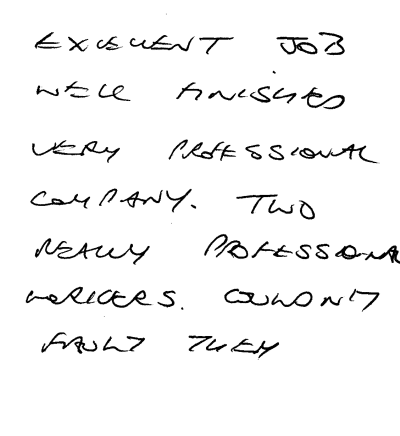 EXCELLENT JOB
WELL FINISHED
VERY PROFESSIONAL
COMPANY. TWO
REALLY PROFESSIONAL
WORKERS. COULDN'T
FAULT THEM